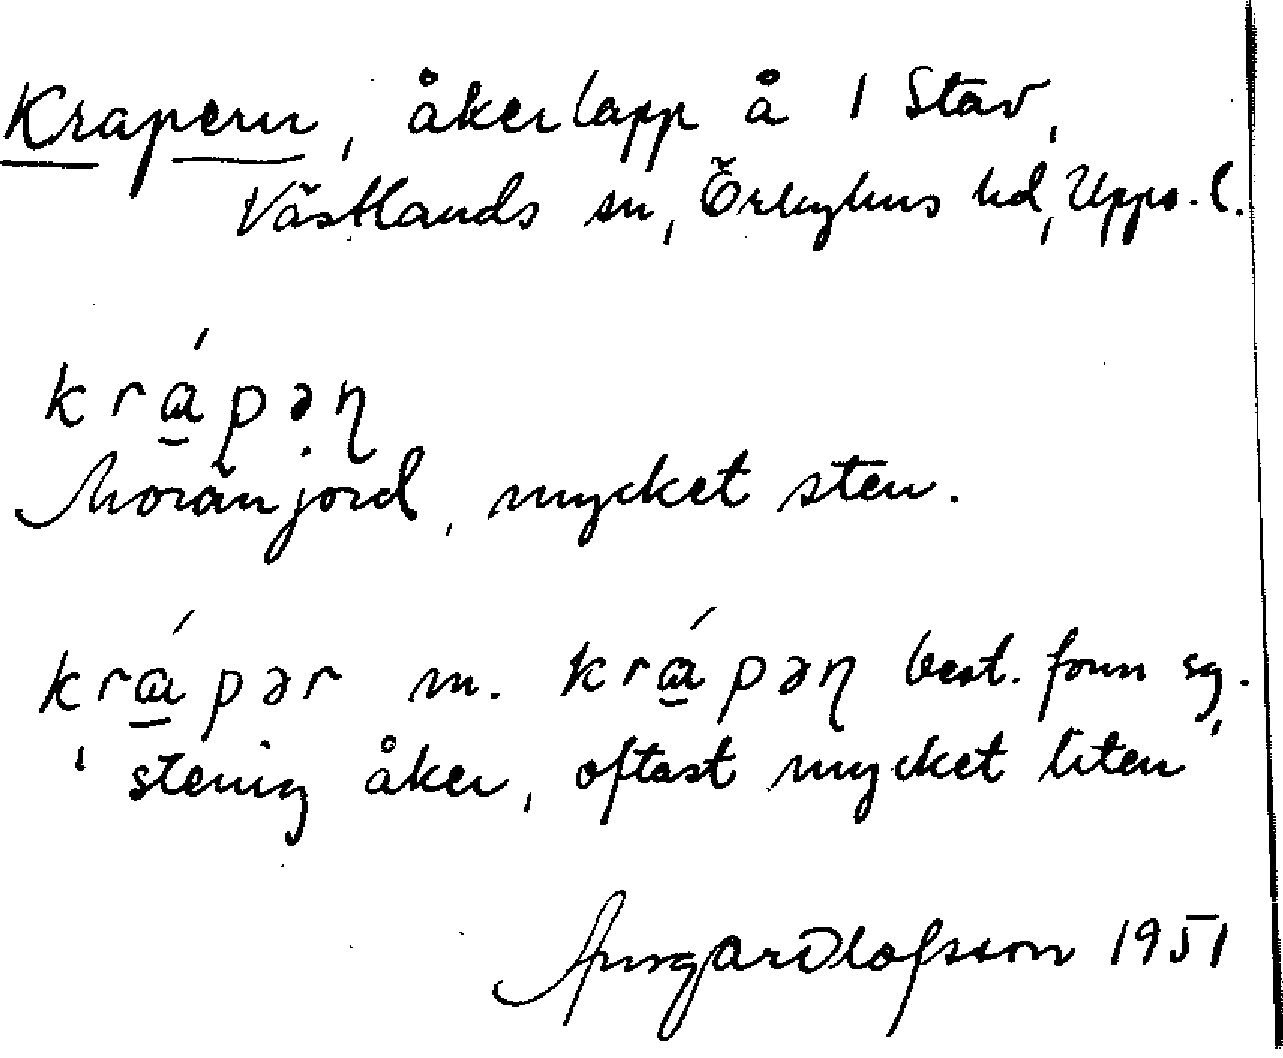 Krapern, åkerlapp å 1 Stav,
Västlands sn, Örbyhus hd, Upps. l.
krápə̣ɳ
Moränjord, mycket sten.
krápər m. krápəɳ best. form sg.
'stenig åker, oftast mycket liten'
Ansgar Olofsson 1951